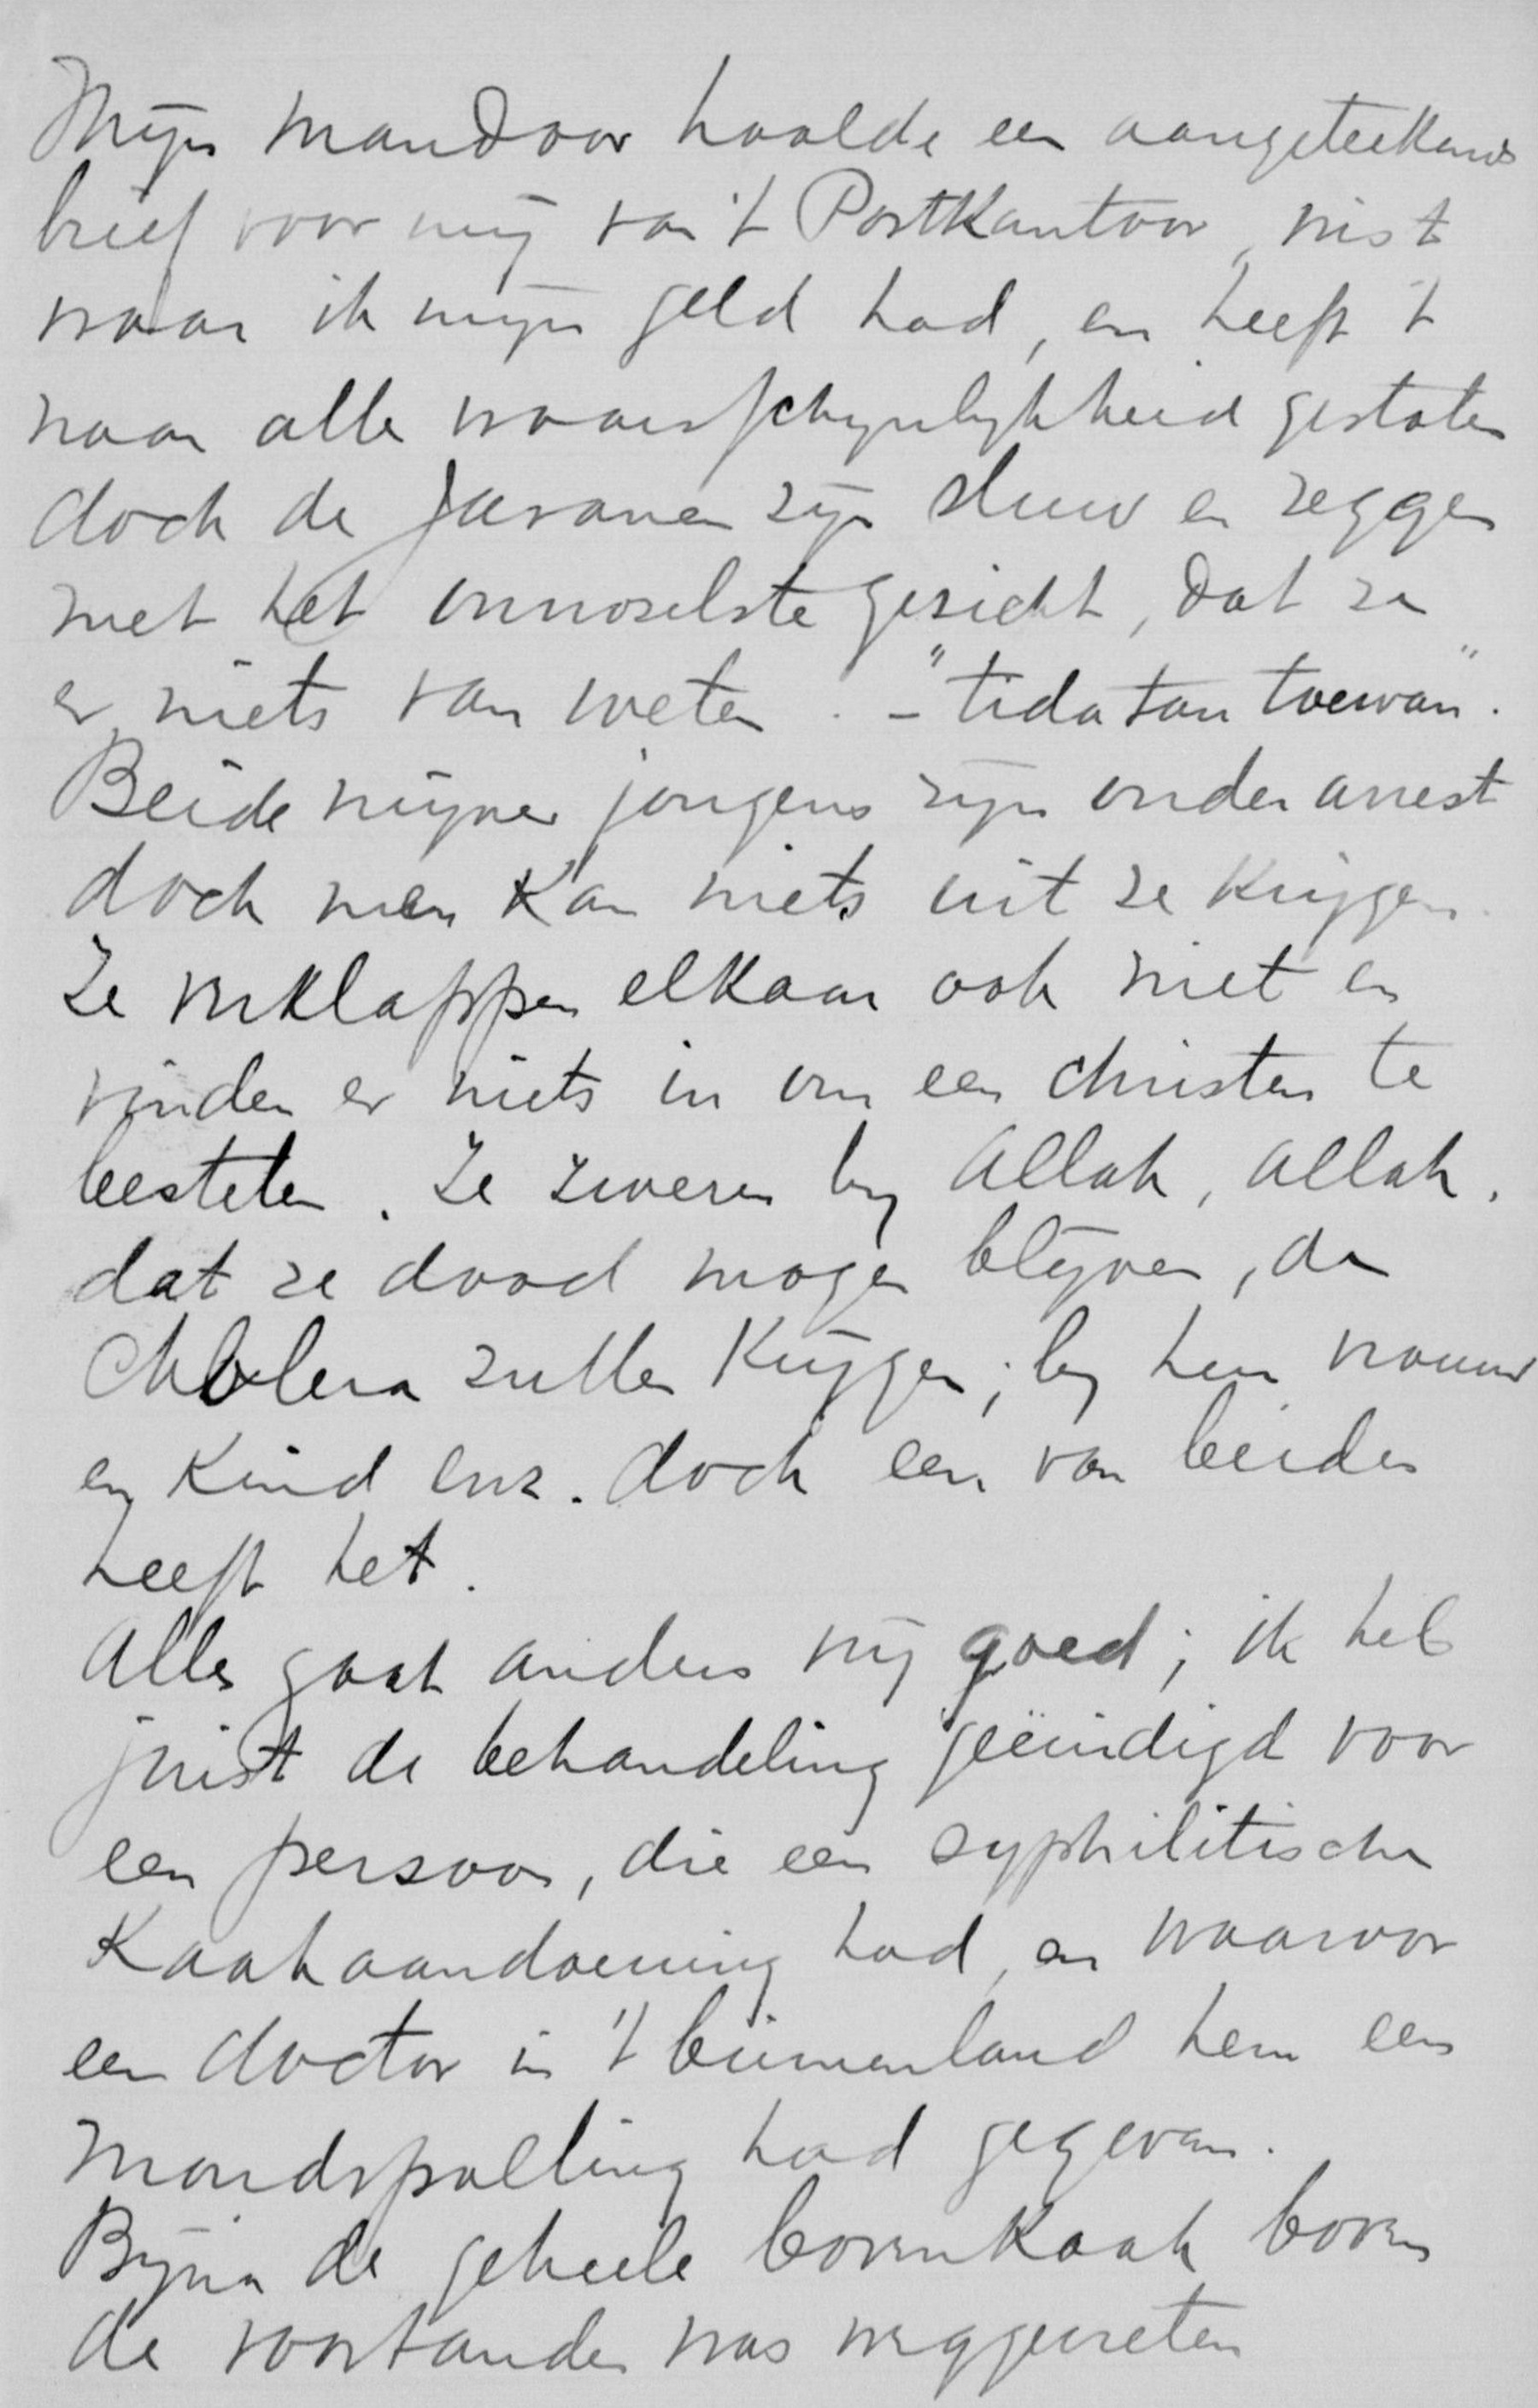 Mijn mandoor haalde een aangeteekend
brief voor mij van 't Postkantoor, wist
waar ik mijn geld had, en heeft 't
naar alle waarschijnlijkheid gestolen
doch de Javanen zijn sluw en zeggen
met het onnoselste gezicht, dat ze
er niets van weten. - "tida tau toewan".
Beide mijner jongens zijn onder arrest
doch men kan niets uit ze krijgen.
Ze verklappen elkaar ook niet en
vinden er niets in om een christen te
bestelen. Ze zweren bij Allah, Allah,
dat ze dood mogen blijven, de
Cholera zullen krijgen; bij hun vrouw
en kind enz. doch een van beiden
heeft het.
Alles gaat anders vrij goed; ik heb
juist de behandeling geëindigd voor
een persoon, die een syphilitische
Kaakaandoening had, en waarvoor
een doctor in 't binnenland hem een
mondspoeling had gegeven.
Bijna de geheele bovenkaak boven
de voortanden was weggevreten